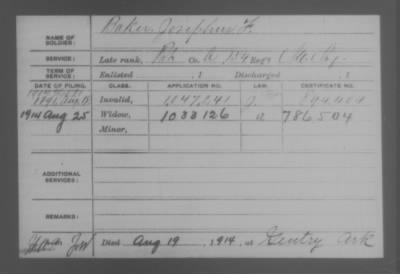 NAME OF SOLDIER: Baker, Josephus F.
SERVICE: Late rank, Pvt Co. A, 154 Reg't
TERM OF SERVICE: Enlisted , 1 Discharged , 1
DATE OF FILING. CLASS. APPLICATION NO. LAW. CERTIFICATE NO.
Invalid, 1047241
1914 Aug 25 Widow, 1033126 786504
Minor,
ADDITIONAL SERVICES:
REMARKS:
Died Aug 19, 1914, at Gentry Ark